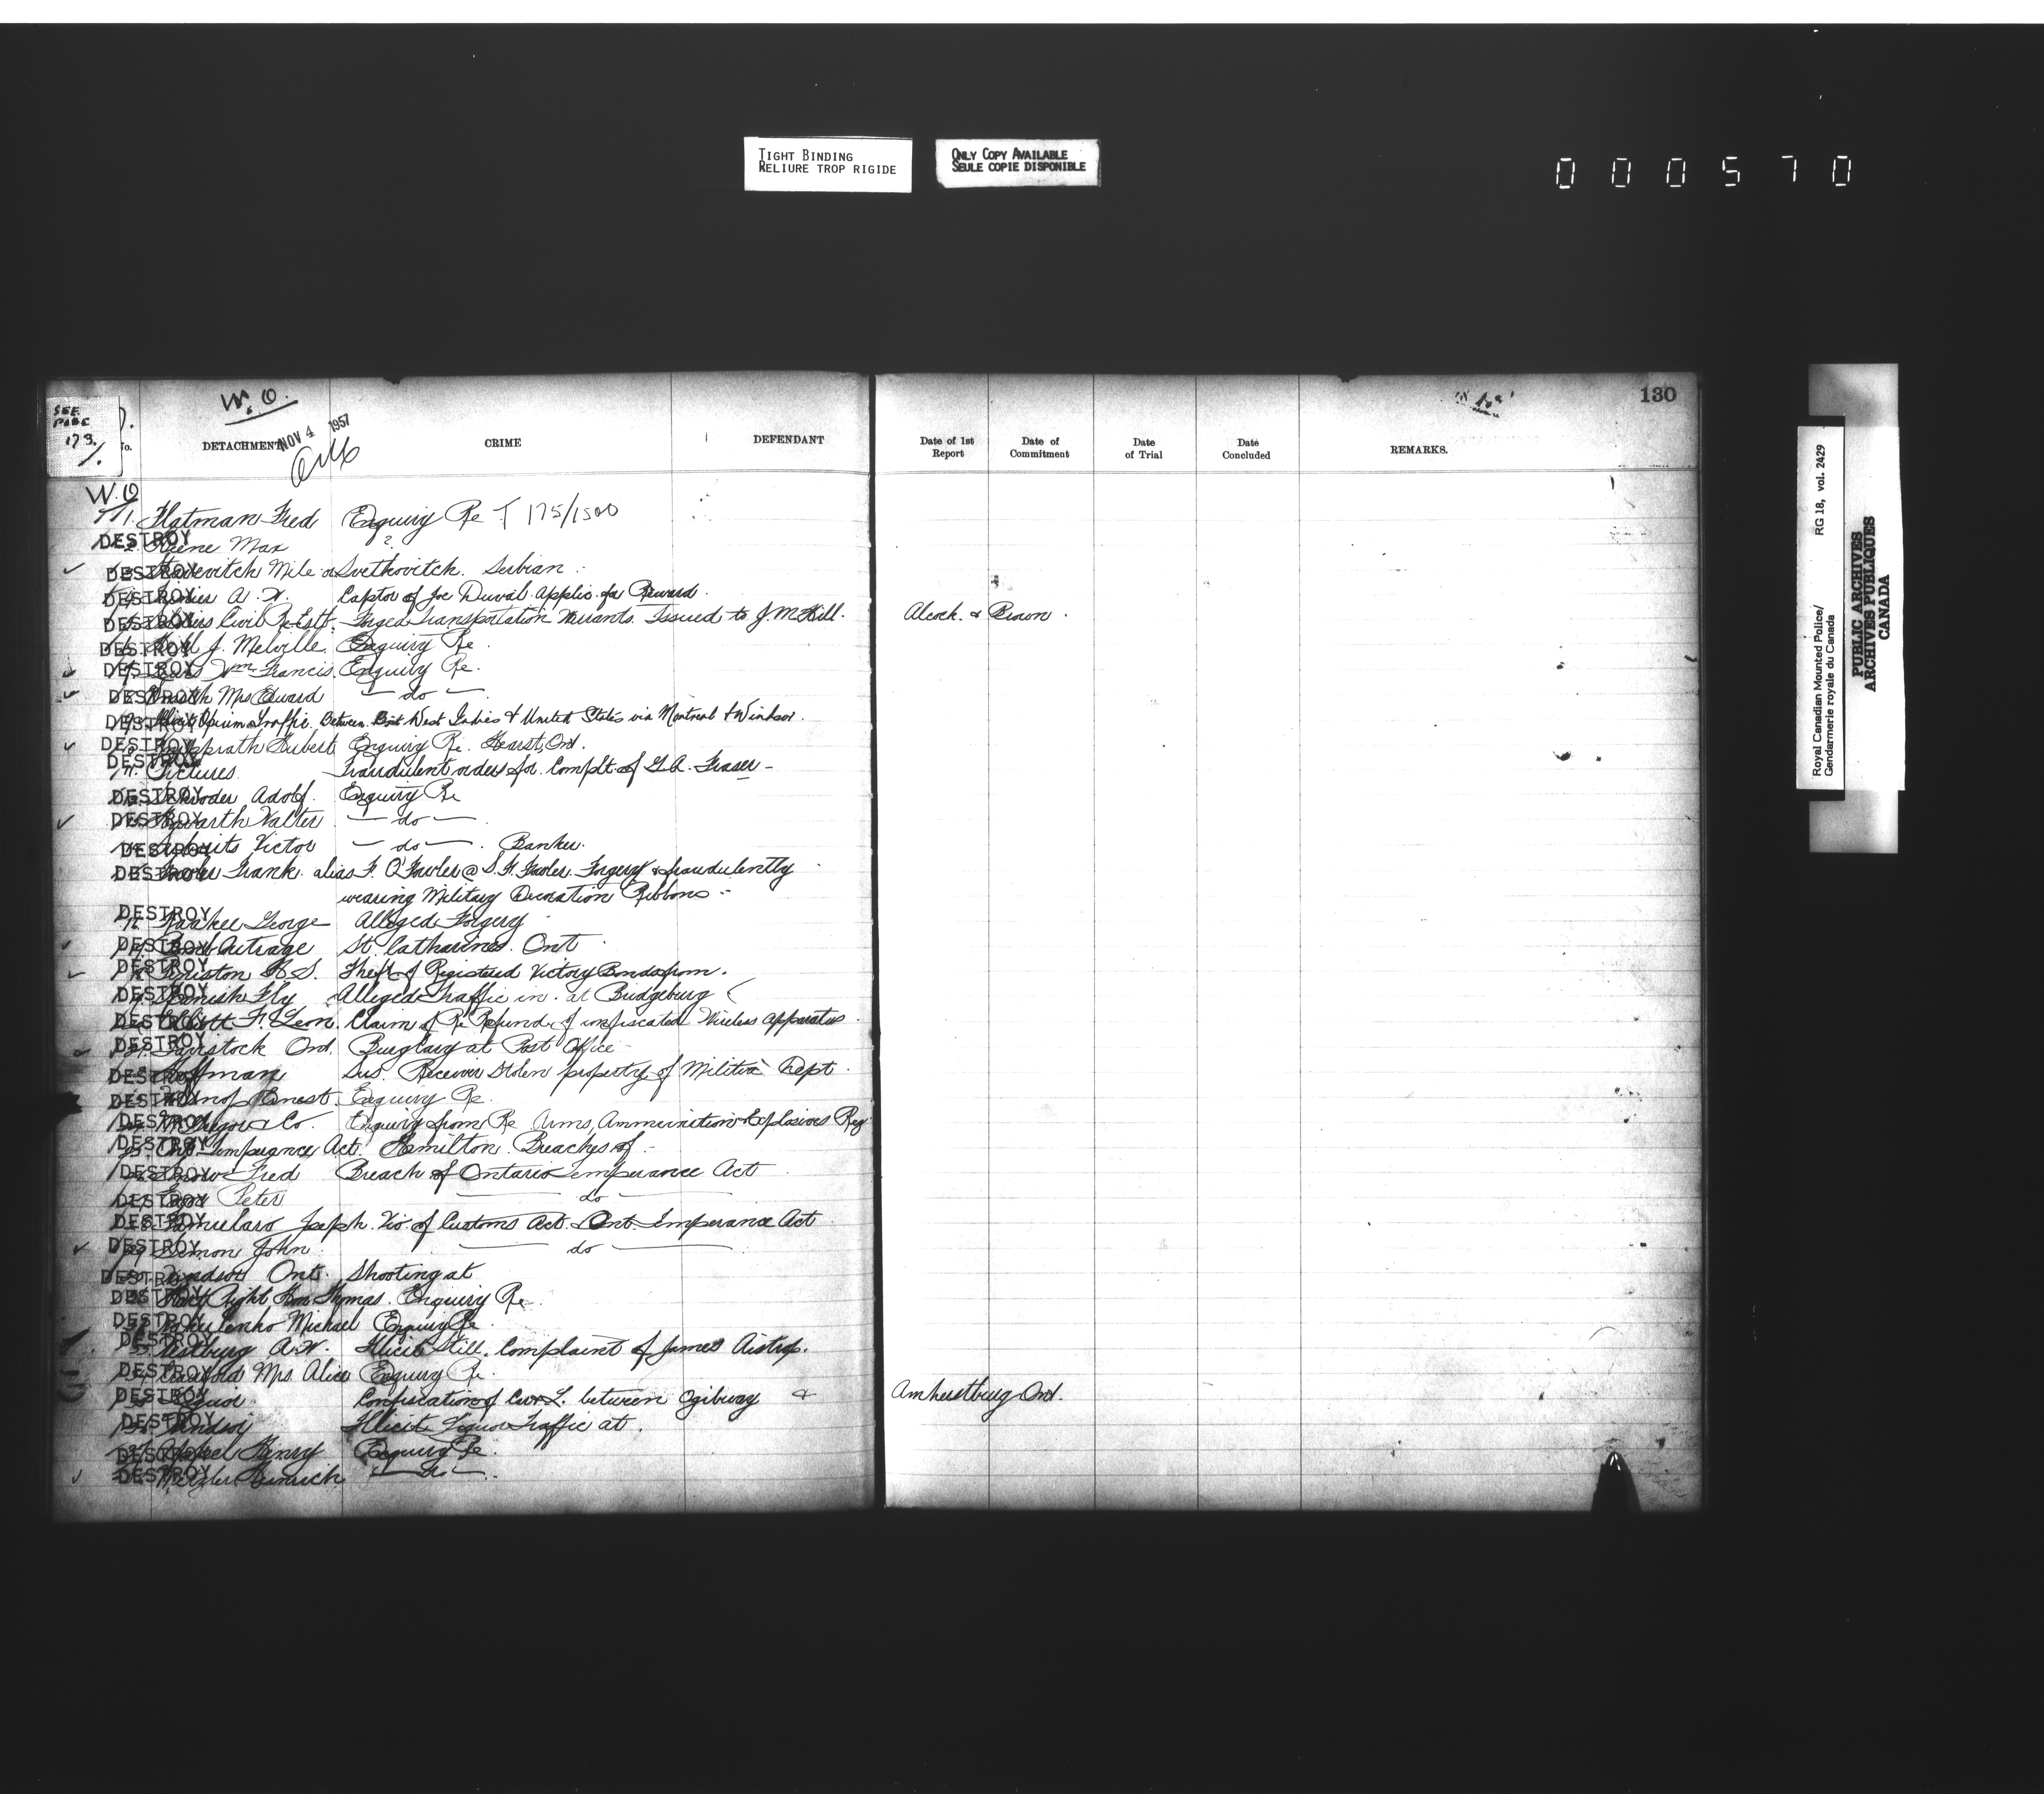 TIGHT BINDING
RELIURE TROP RIGIDE
ONLY COPY AVAILABLE
SEULE COPIE DISPONIBLE
000570
130
SEE
PAGE
173.
W. O.
NOV 4 1957
No.
DETACHMENT
CRIME
DEFENDANT
Date of 1st Report
Date of Commitment
Date of Trial
Date Concluded
REMARKS.
W.O
1. Flatman Fred Enquiry Re 175/1500
DESTROY Max ?
DESTROY Mile or Svetkovitch. Serbian
DESTROY A. W. Captor of Joe Duval. Applic. for Reward.
DESTROY Civil Re-Est. Forged Transportation Warrants. Issued to J. M. Hill. Alcock. & Brown.
DESTROY Hill J. Melville. Enquiry Re
DESTROY Wm Francis. Enquiry Re.
DESTROY Mrs Edward — do —
DESTROY Illicit Opium Traffic. Between Brit West Indies & United States via Montreal & Windsor.
DESTROY Hubert Enquiry Re. Hearst, Ont.
DESTROY
11. Pictures Fraudulent orders for. Complt of G. A. Fraser -
DESTROY Adolf. Enquiry Re
DESTROY Walter — do —
DESTROY Victor — do —. Banker.
DESTROY Fowler Frank. alias F. O'Fowler @ S. F. Fowler. Forgery & fraudulently
wearing Military Decoration Ribbons -
DESTROY
George Alleged Forgery
DESTROY Outrage St. Catharines. Ont
DESTROY R. S. Theft of Registered Victory Bonds from.
DESTROY Spanish Fly Alleged Traffic in. at Bridgeburg
DESTROY F. Leon. Claim of Re Refund of confiscated Wireless apparatus
DESTROY Tavistock Ont. Burglary at Post Office
DESTROY Hoffman Sus. Receiver Stolen property of Militia Dept.
DESTROY Ernest. Enquiry Re.
DESTROY & Co. Enquiry from Re Arms, Ammunition & Explosives Reg
DESTROY
25. Ont Temperance Act. Hamilton. Breaches of -
DESTROY Fred Breach of Ontario Temperance Act
DESTROY Peter — do —
DESTROY Joseph. Vio. of Customs Act. & Ont. Temperance Act
DESTROY John — do —
DESTROY Windsor Ont. Shooting at
DESTROY Right Hon Thomas. Enquiry Re.
DESTROY Michael Enquiry Re
DESTROY A. W. Illicit Still. Complaint of James Aistrop.
DESTROY Mrs. Alice Enquiry Re.
DESTROY Liquor Confiscation of Car & L. between Ogibway & Amherstburg Ont.
DESTROY Windsor Illicit Liquor Traffic at.
DESTROY Henry Enquiry Re
DESTROY Heinrich — do —
Royal Canadian Mounted Police/
Gendarmerie royale du Canada
RG 18, vol. 2429
PUBLIC ARCHIVES
ARCHIVES PUBLIQUES
CANADA